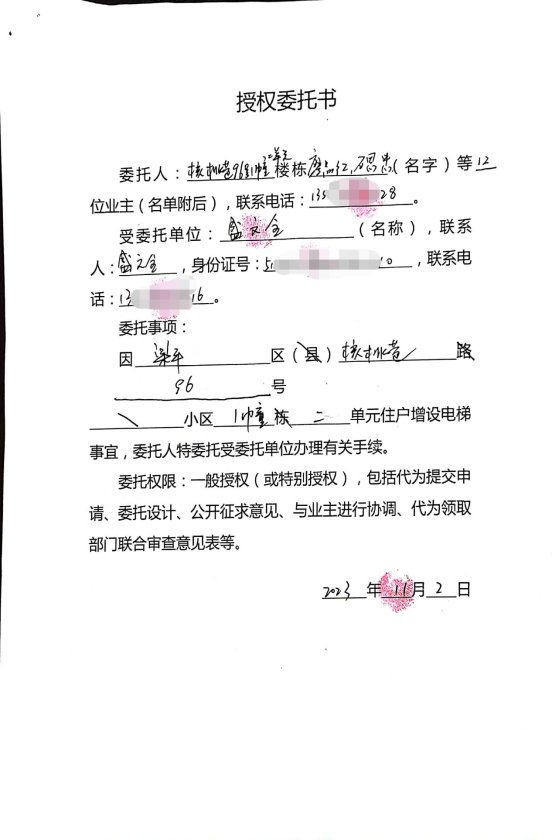 授权委托书
委托人：核桃巷96号1幢二单元楼栋（名字）等12
位业主（名单附后），联系电话：135 28。
受委托单位：盛文全（名称），联系
人：盛文全，身份证号：51 10，联系电
话：13 16。
委托事项：
因梁平区（县）核桃巷路
96号
小区1幢栋二单元住户增设电梯
事宜，委托人特委托受委托单位办理有关手续。
委托权限：一般授权（或特别授权），包括代为提交申
请、委托设计、公开征求意见、与业主进行协调、代为领取
部门联合审查意见表等。
2023年11月2日